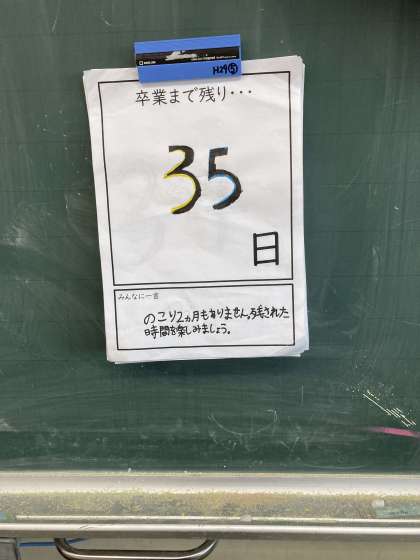 H29⑤
卒業まで残り・・・
35
日
みんなに一言
のこり2ヵ月もありません。残された
時間を楽しみましょう。